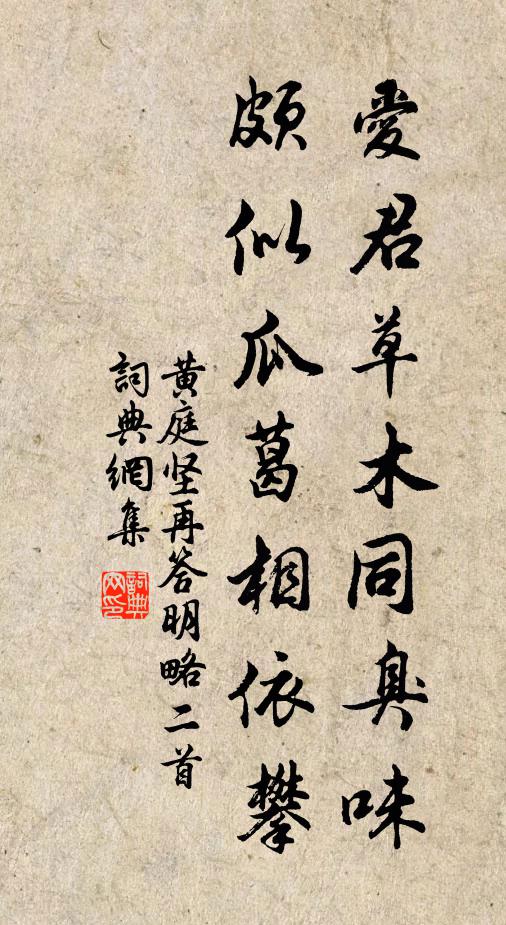 愛君草木同臭味
頗似瓜葛相依攀
黃庭坚再答明略二首
詞典網集
詞典網印